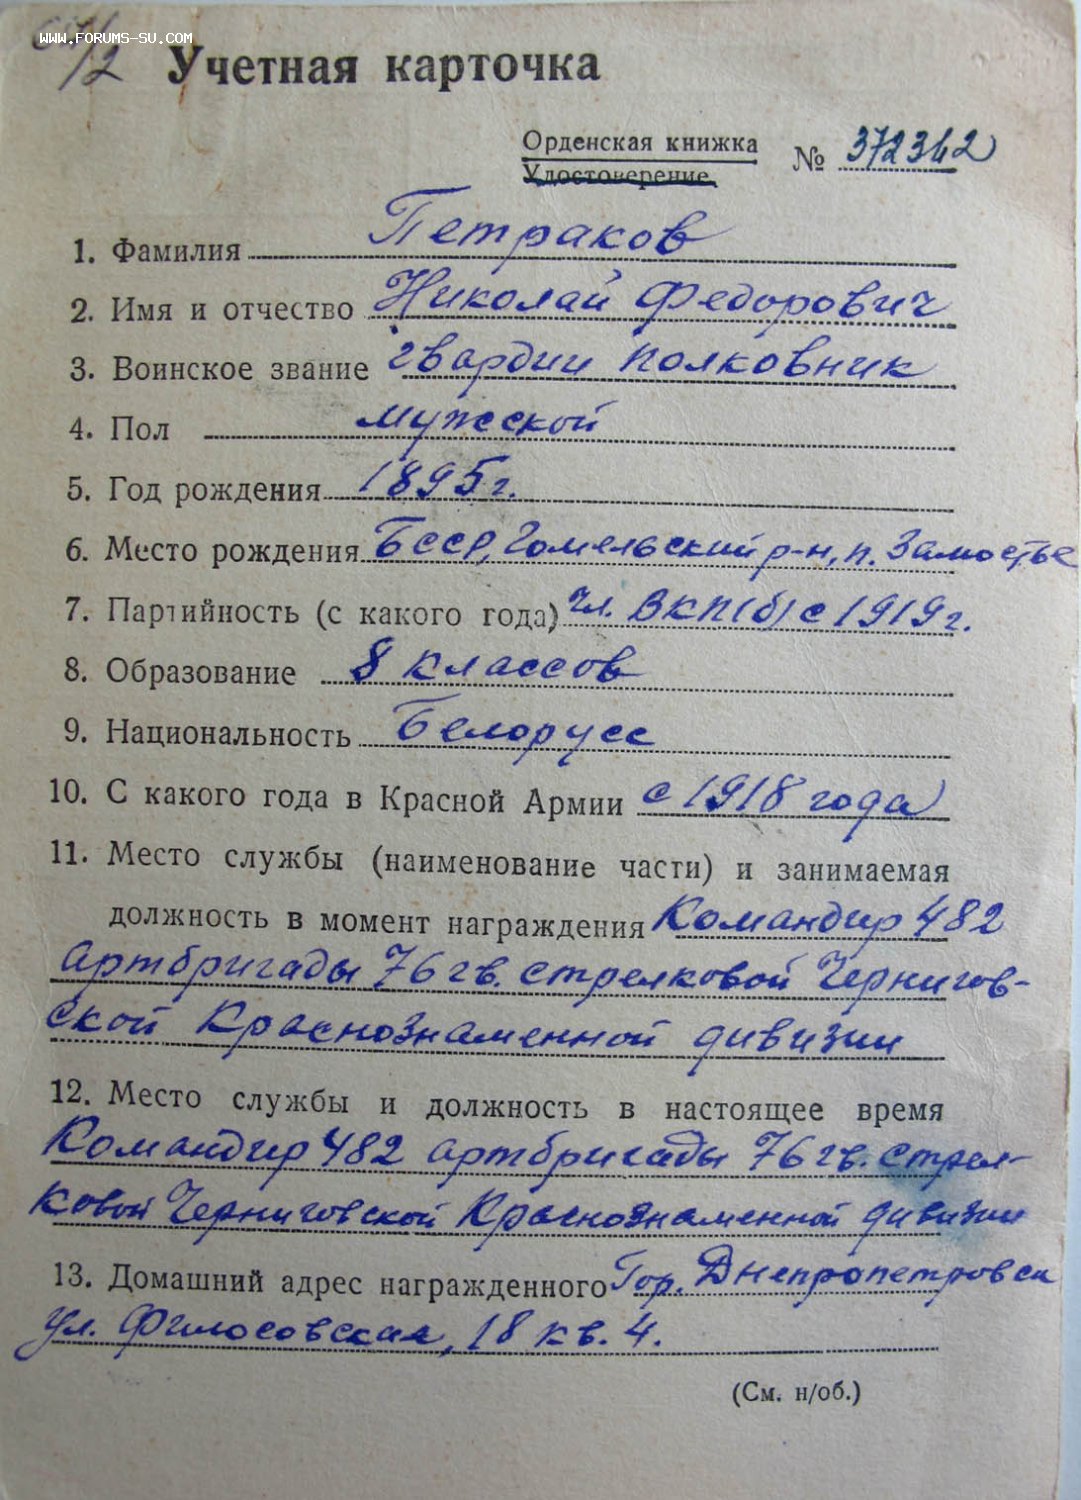 www.forums-su.com
/2 Учетная карточка
Орденская книжка
Удостоверение
№ 372342
1. Фамилия Петраков
2. Имя и отчество Николай Федорович
3. Воинское звание гвардии полковник
4. Пол мужской
5. Год рождения 1895 г.
6. Место рождения БССР, Гомельский р-н, п. Замостье
7. Партийность (с какого года) чл. ВКП(б) с 1919 г.
8. Образование 8 классов
9. Национальность Белорусс
10. С какого года в Красной Армии с 1918 года
11. Место службы (наименование части) и занимаемая
должность в момент награждения Командир 482
артбригады 76 гв. стрелковой Чернигов-
ской Краснознаменной дивизии
12. Место службы и должность в настоящее время
Командир 482 артбригады 76 гв. стрел-
ковой Черниговской Краснознаменной дивизии
13. Домашний адрес награжденного Гор. Днепропетровск
ул. Философская, 18 кв. 4.
(См. н/об.)